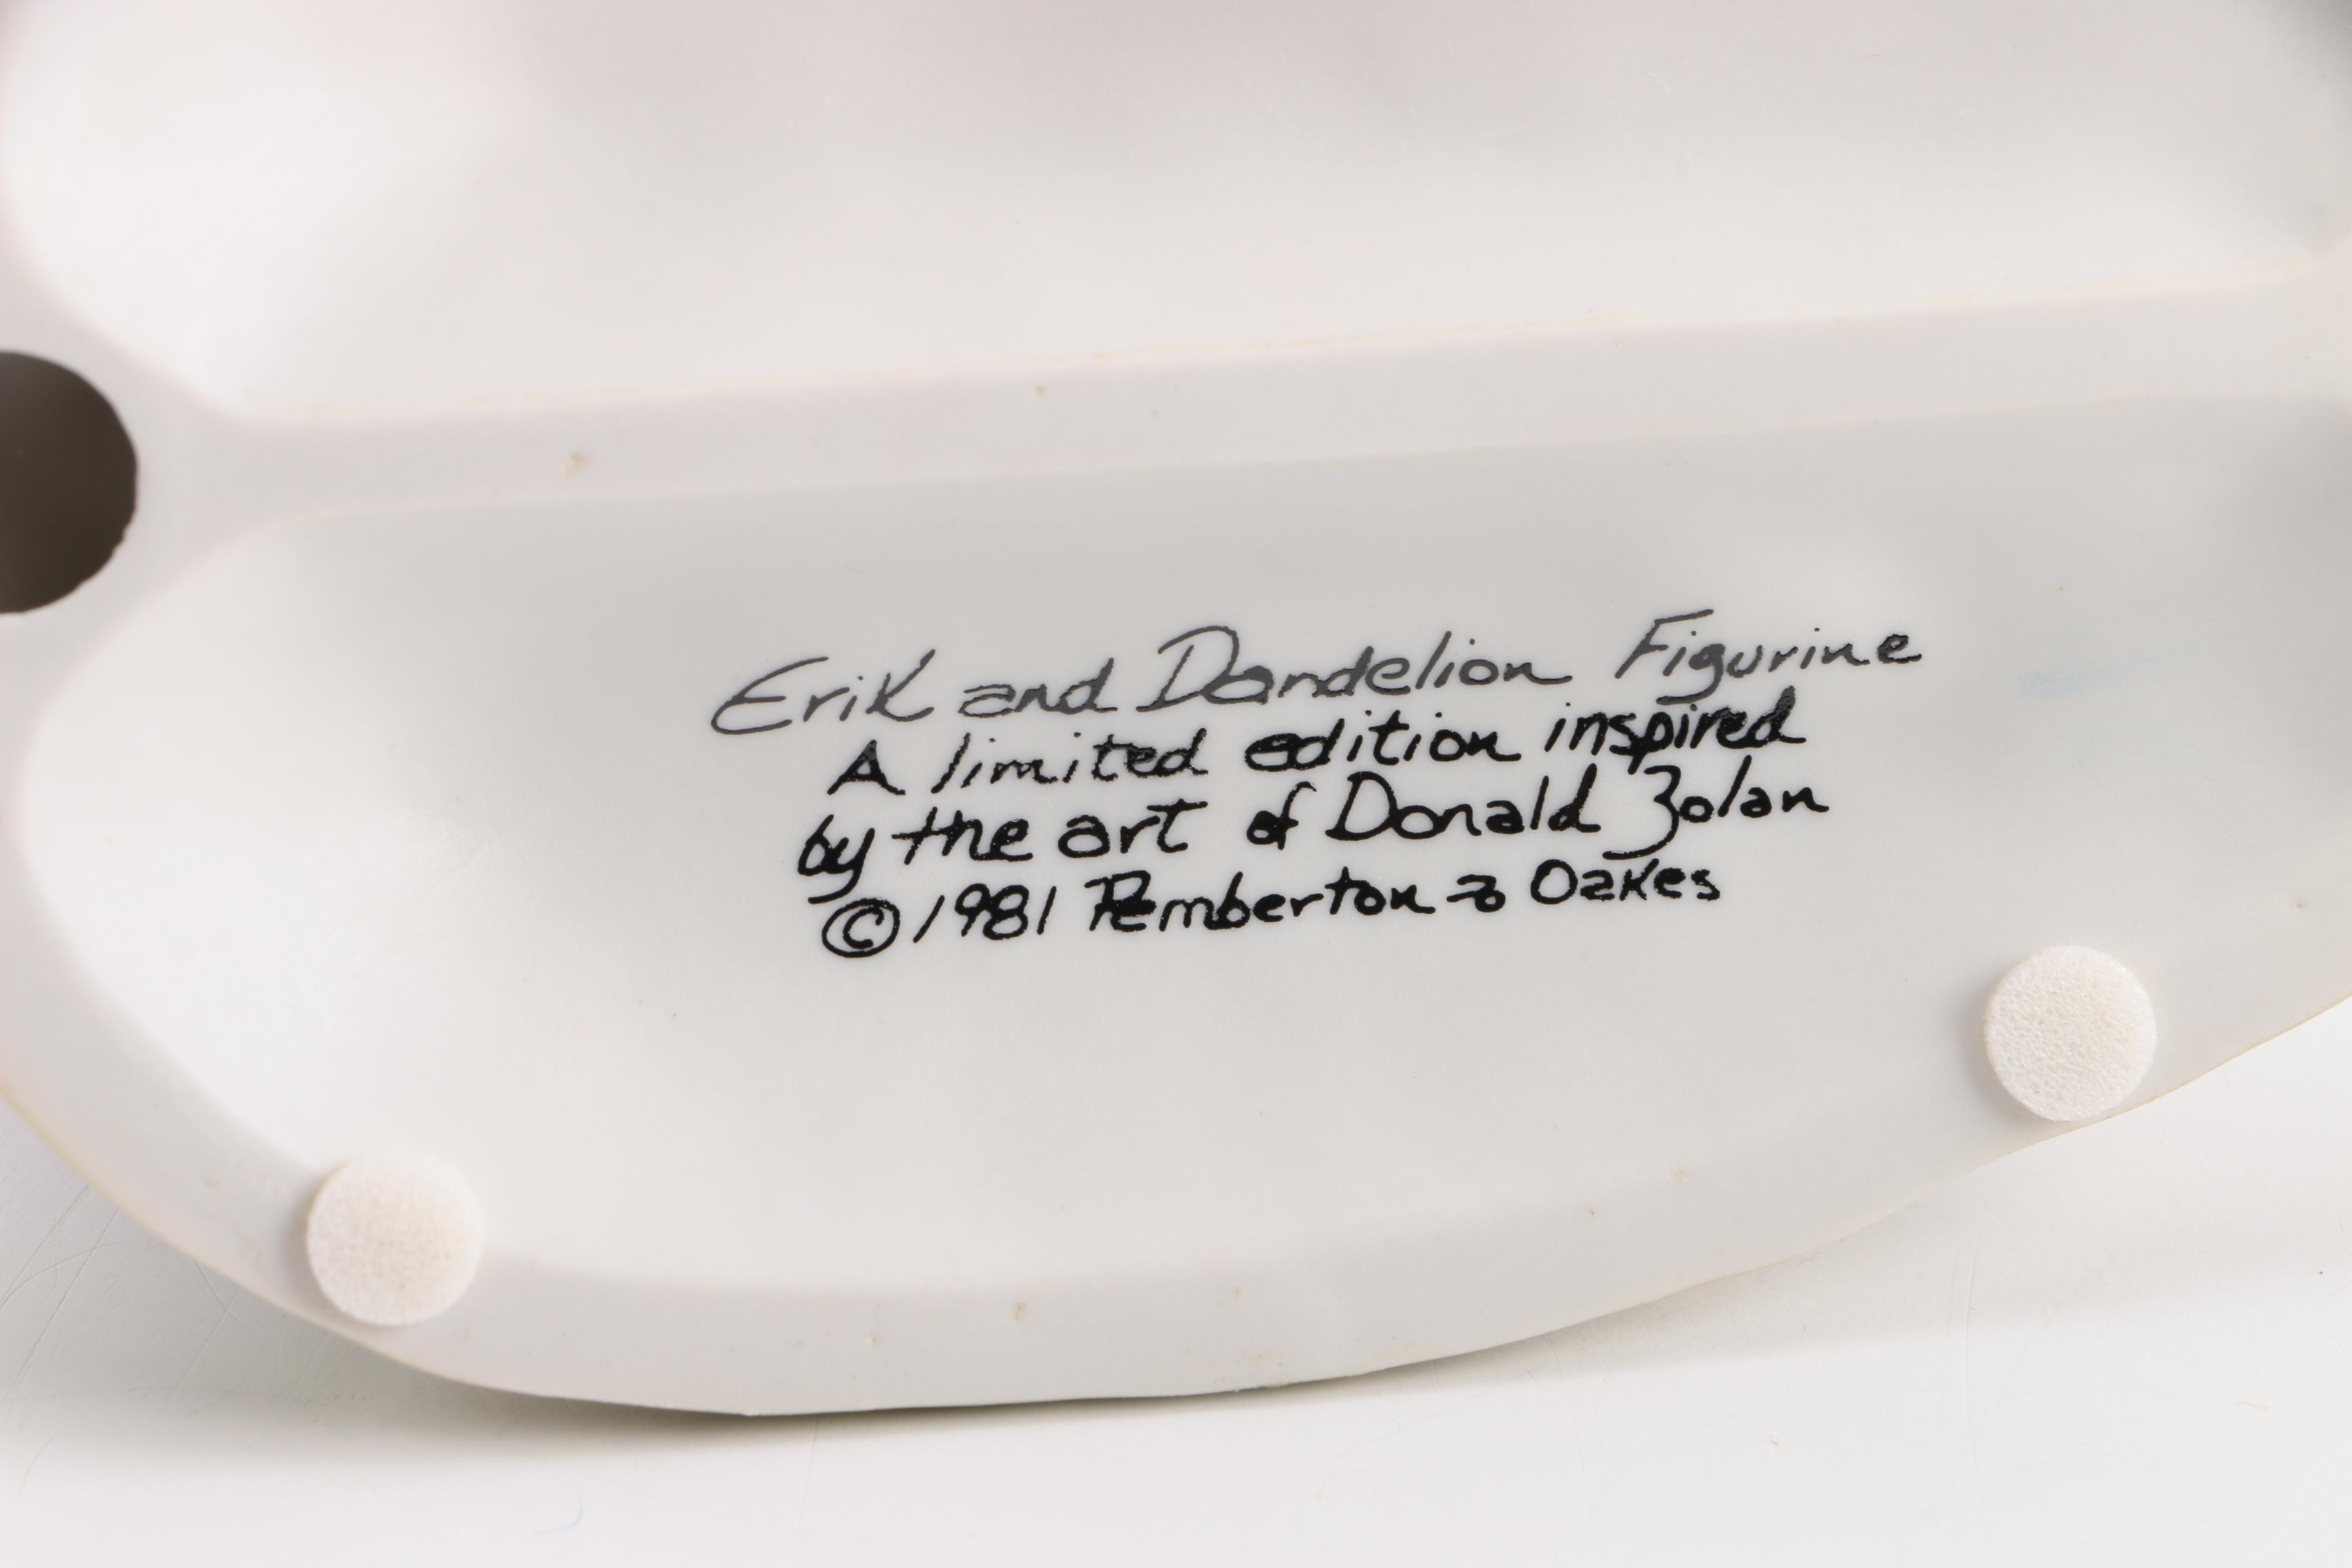 Erik and Dandelion Figurine
A limited edition inspired
by the art of Donald Zolan
© 1981 Pemberton & Oakes